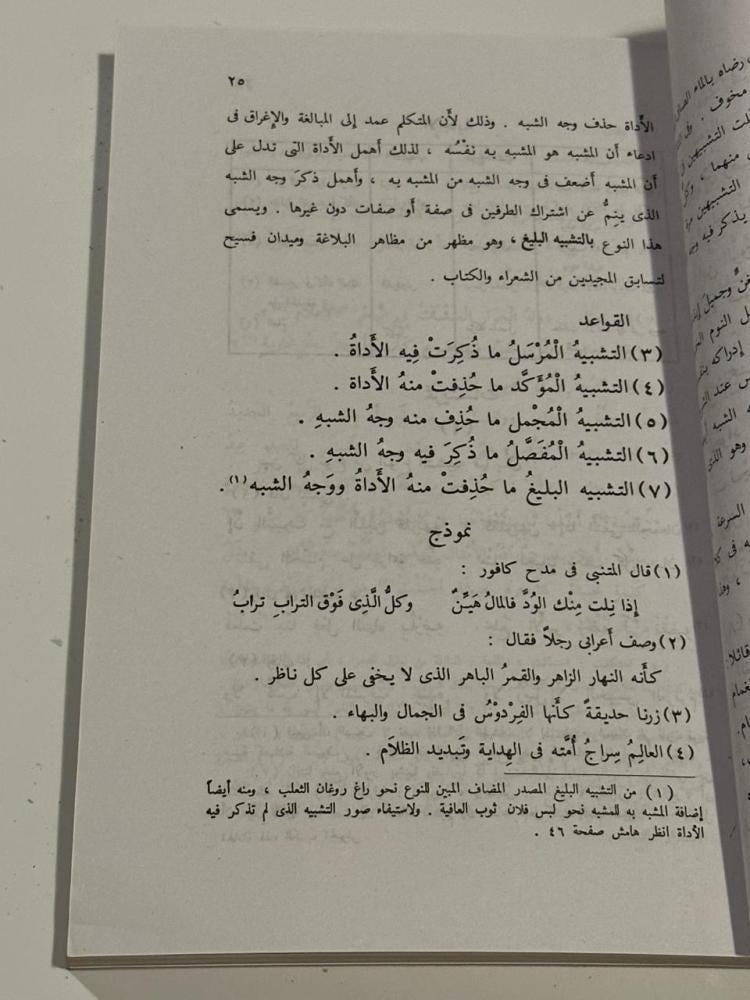 ٢٥
الأداة حذف وجه الشبه . وذلك لأَن المتكلم عمد إلى المبالغة والإغراق فى
ادعاء أن المشبه هو المشبه به نفْسُه ، لذلك أهمل الأداة التى تدل على
أن المشبه أضعف فى وجه الشبه من المشبه به ، وأهمل ذكرَ وجه الشبه
الذى ينِمُّ عن اشتراك الطرفين فى صفة أو صفات دون غيرها . ويسمى
هذا النوع بالتشبيه البليغ ، وهو مظهر من مظاهر البلاغة وميدان فسيح
لتسابق المجيدين من الشعراء والكتاب .
القواعد
(٣) التشبيهُ الْمُرْسَلُ ما ذُكِرَتْ فِيه الأَداةُ .
(٤) التشبيهُ الْمُؤَكَّد ما حُذِفتْ منهُ الأَداة .
(٥) التشبيهُ الْمُجْمل ما حُذِف منه وجهُ الشبهِ .
(٦) التشبيهُ الْمُفَصَّلُ ما ذُكِرَ فيه وجهُ الشبهِ .
(٧) التشبيه البليغُ ما حُذِفتْ منهُ الأَداةُ ووَجهُ الشبه(١) .
نموذج
(١) قال المتنبى فى مدح كافور :
إِذا نِلت مِنْك الوُدَّ فالمالُ هَيِّنٌ وكلُّ الَّذِى فَوْق الترابِ ترابُ
(٢) وصف أعرابى رجلاً فقال :
كأَنه النهار الزاهر والقمرُ الباهر الذى لا يخفى على كل ناظر .
(٣) زرنا حديقةً كأَنها الفِرْدوْسُ فى الجمال والبهاء .
(٤) العالِمُ سِراجُ أُمَّته فى الهِداية وتَبديد الظلاَم .
(١) من التشبيه البليغ المصدر المضاف المبين للنوع نحو راغ روغان الثعلب ، ومنه أيضاً
إضافة المشبه به للمشبه نحو لبس فلان ثوب العافية . ولاستيفاء صور التشبيه الذى لم تذكر فيه
الأداة انظر هامش صفحة ٤٦ .